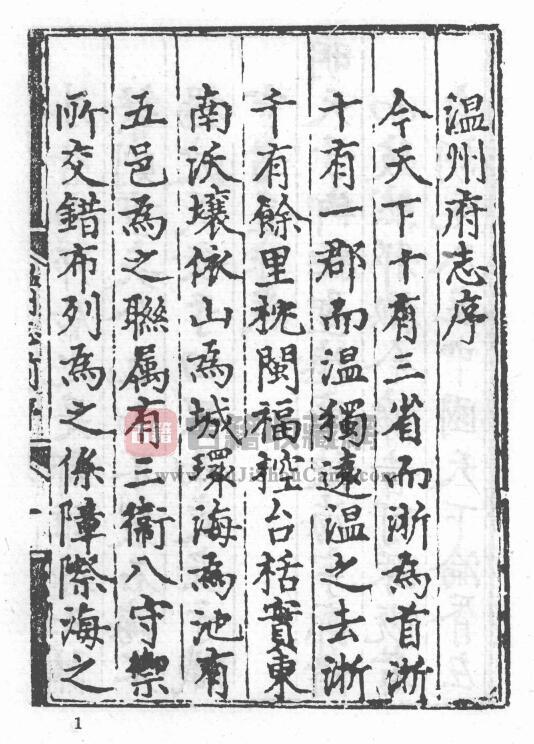 温州府志序
今天下十有三省而浙為首浙
十有一郡而温獨遠温之去浙
千有餘里枕閩福控台栝實東
南沃壤依山為城環海為池有
五邑為之聯属有三衞八守禦
所交錯布列為之保障際海之
1